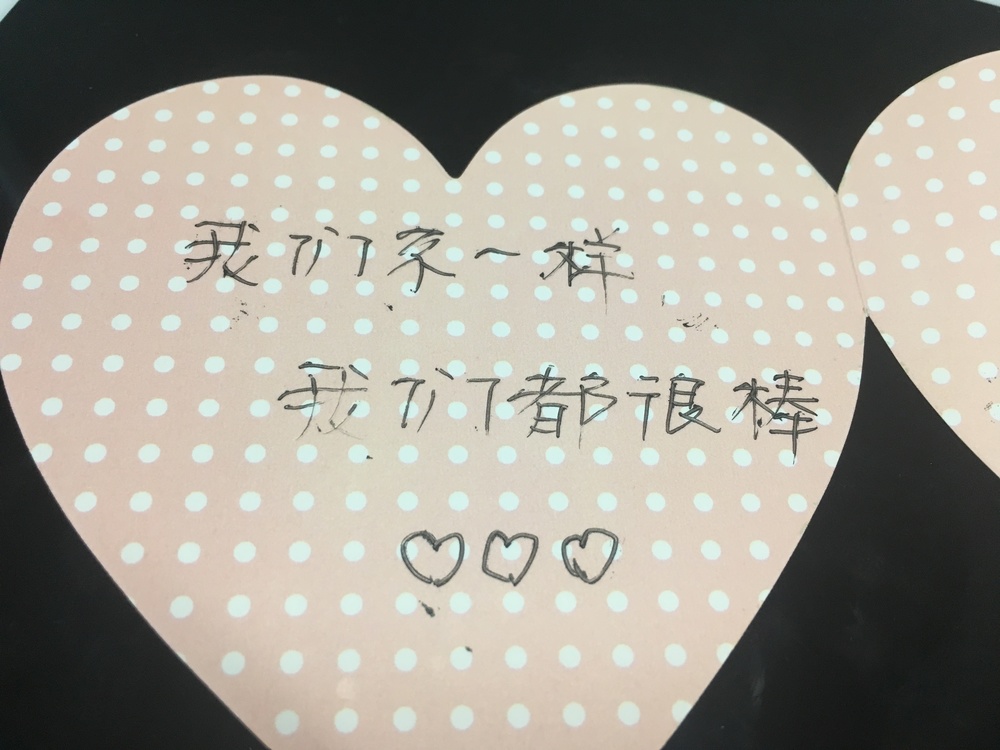 我们不一样
我们都很棒